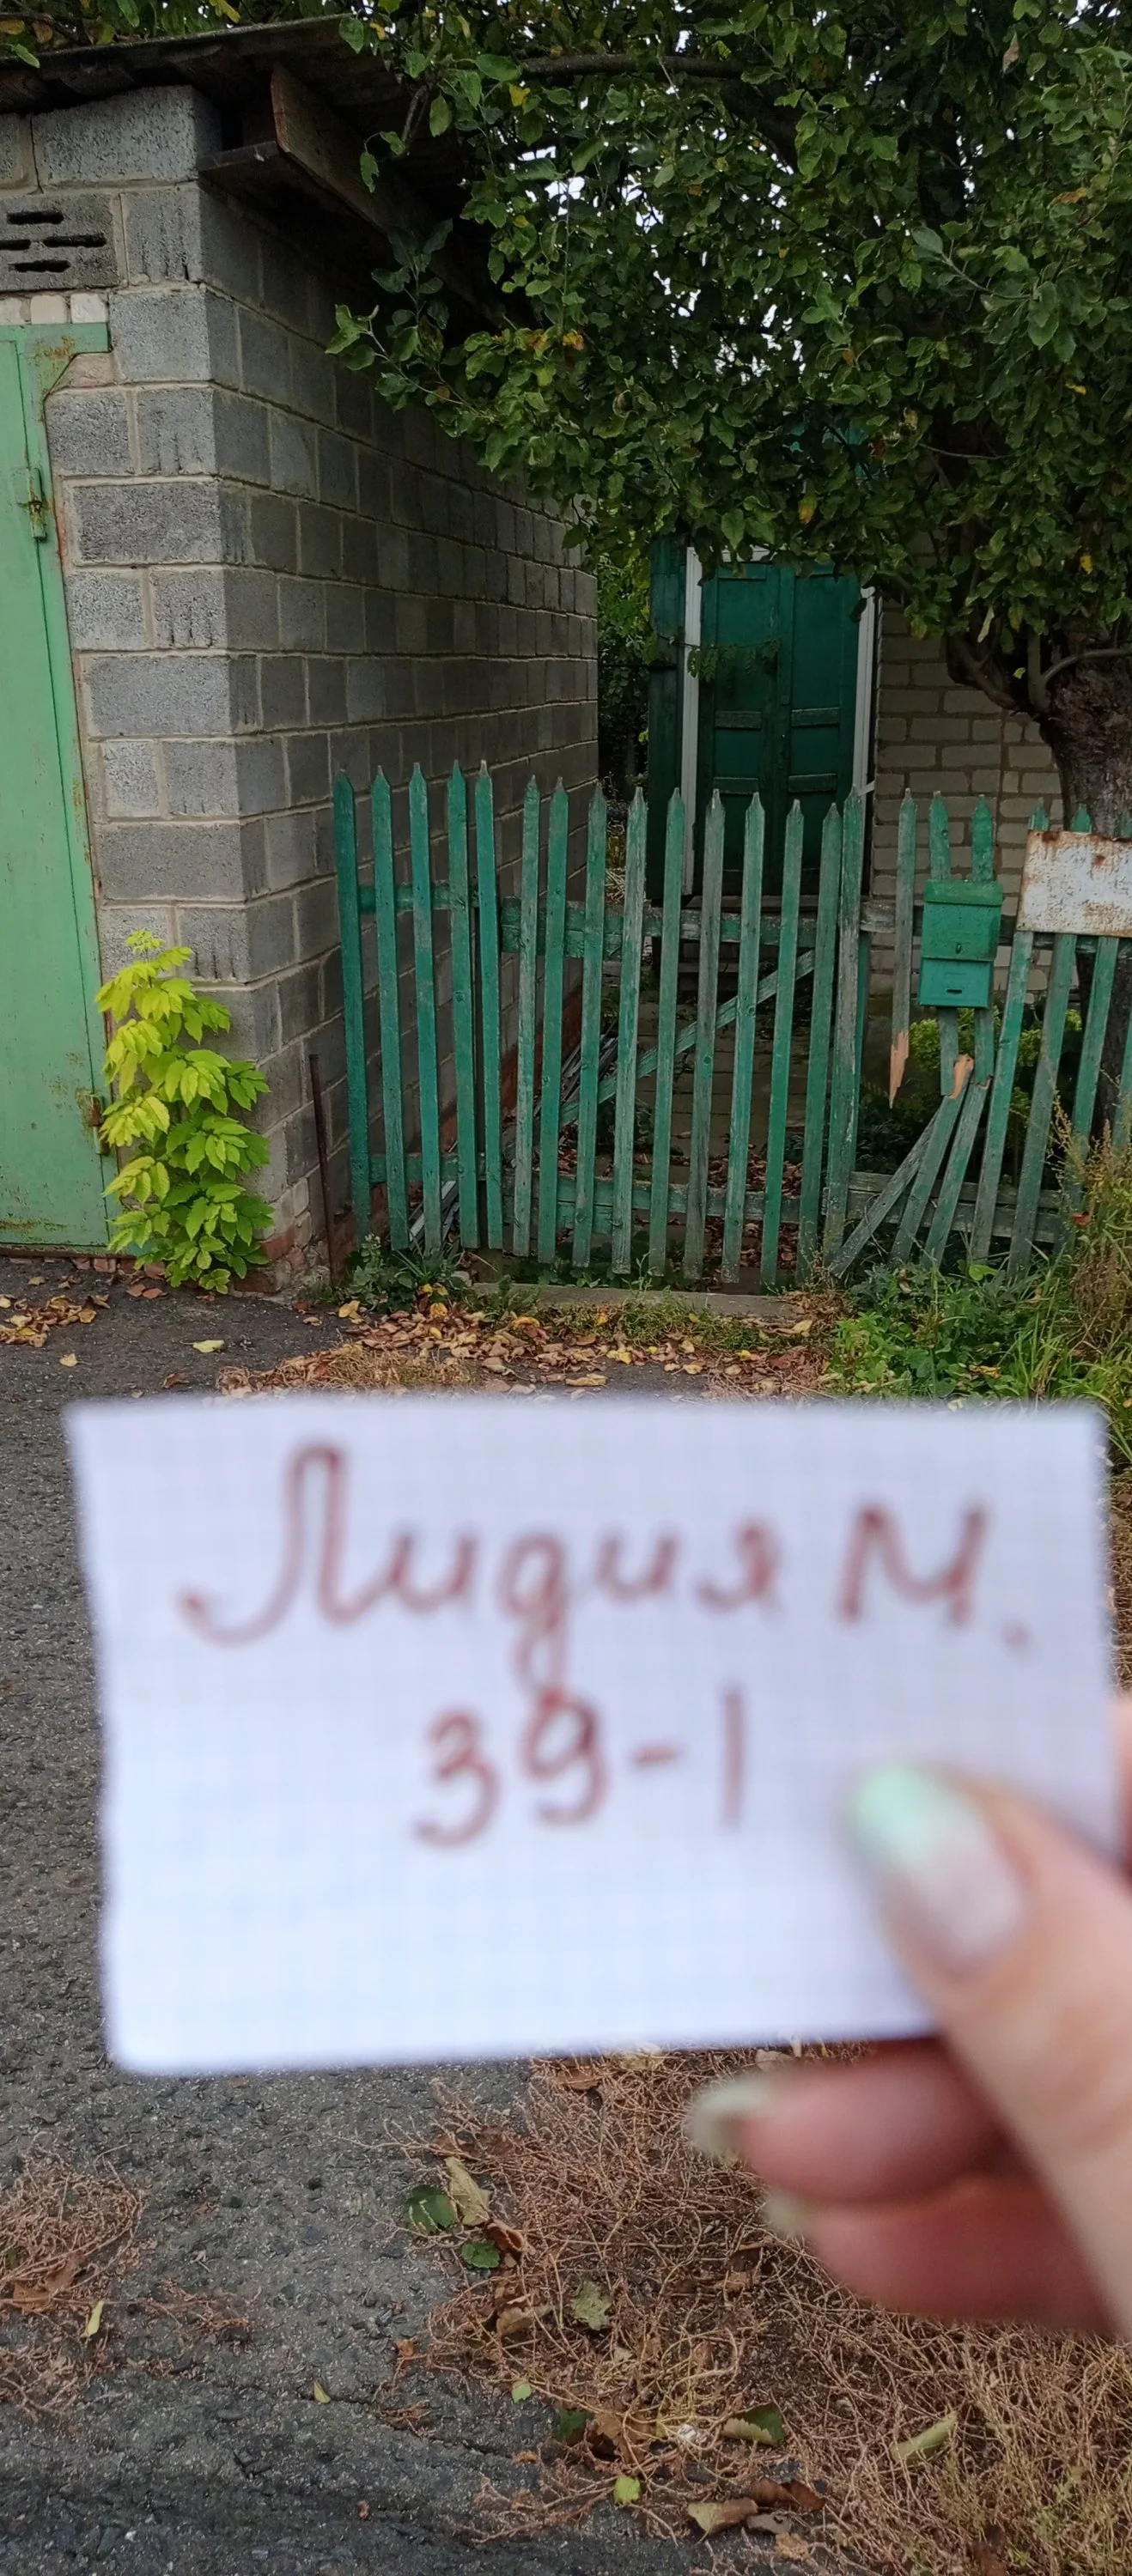 Лидия М.
39-1